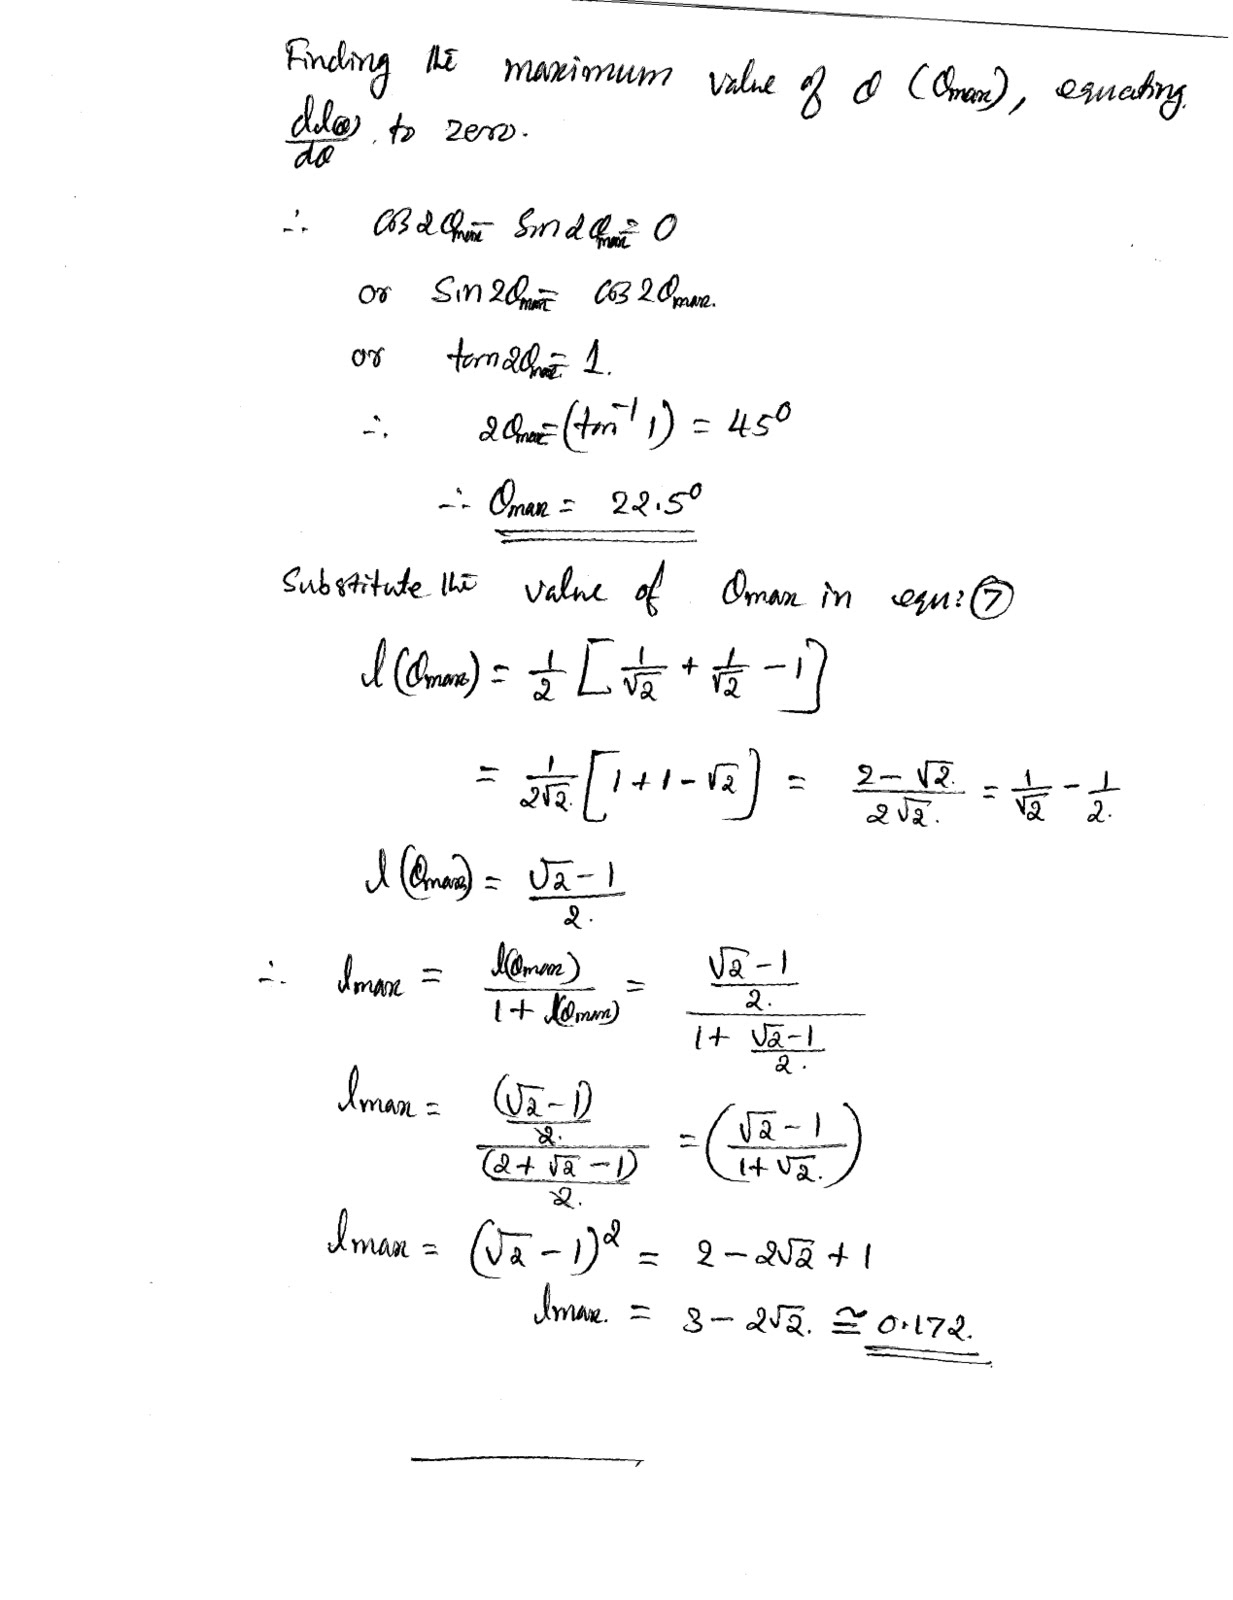 Finding the maximum value of θ (θmax), equating
dl(θ)/dθ, to zero.
∴ cos2θmax − sin2θmax = 0
or sin2θmax = cos2θmax.
or tan2θmax = 1.
∴ 2θmax = (tan⁻¹ 1) = 45⁰
∴ θmax = 22.5⁰
Substitute the value of θmax in equ: ⑦
l(θmax) = 1/2 [1/√2 + 1/√2 − 1]
= 1/2√2. [1 + 1 − √2] = 2 − √2. / 2√2. = 1/√2 − 1/2.
l(θmax) = √2 − 1 / 2.
∴ lmax = l(θmax) / 1 + l(θmax) = (√2 − 1 / 2.) / (1 + √2 − 1 / 2.)
lmax = ((√2 − 1) / 2.) / ((2 + √2 − 1) / 2.) = (√2 − 1 / 1 + √2.)
lmax = (√2 − 1)² = 2 − 2√2 + 1
lmax. = 3 − 2√2. ≅ 0.172.